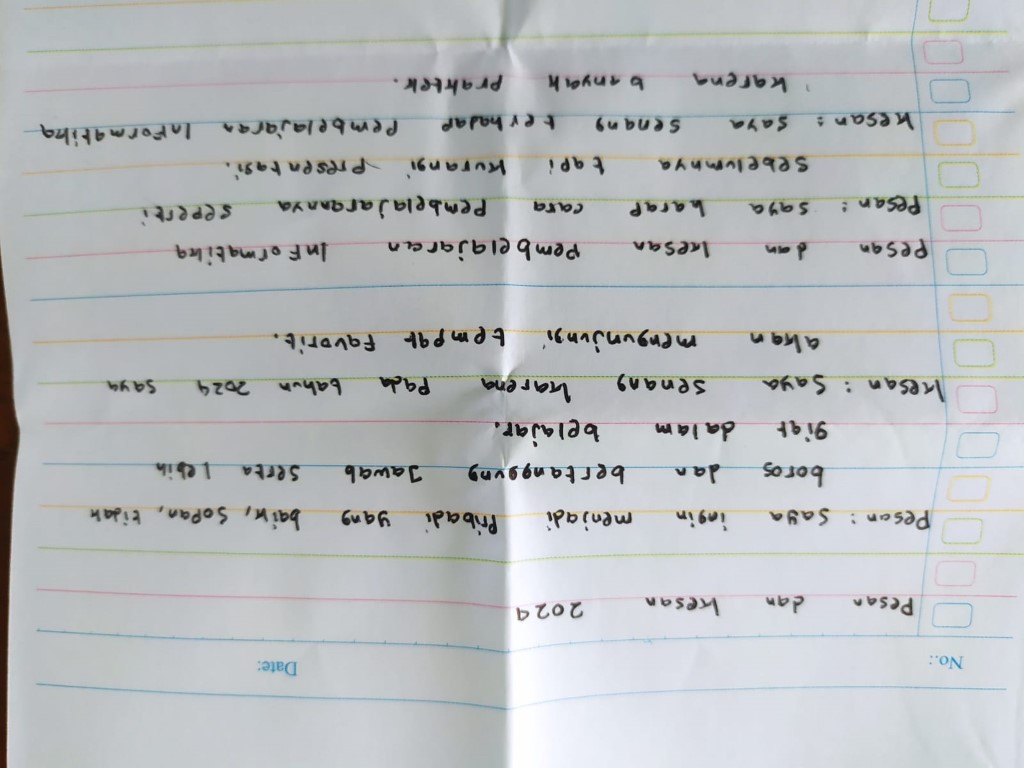 No.: Date:
Pesan dan kesan 2024
Pesan : Saya ingin menjadi Pribadi yang baik, sopan, tidak
boros dan bertanggung Jawab serta lebih
giat dalam belajar.
Kesan : Saya senang karena Pada tahun 2024 saya
akan mengunjungi tempat Favorit.
Pesan dan kesan Pembelajaran Informatika
Pesan : saya harap cara Pembelajarannya seperti
sebelumnya tapi kurangi Presentasi.
Kesan : saya senang terhadap Pembelajaran Informatika
karena banyak praktek.